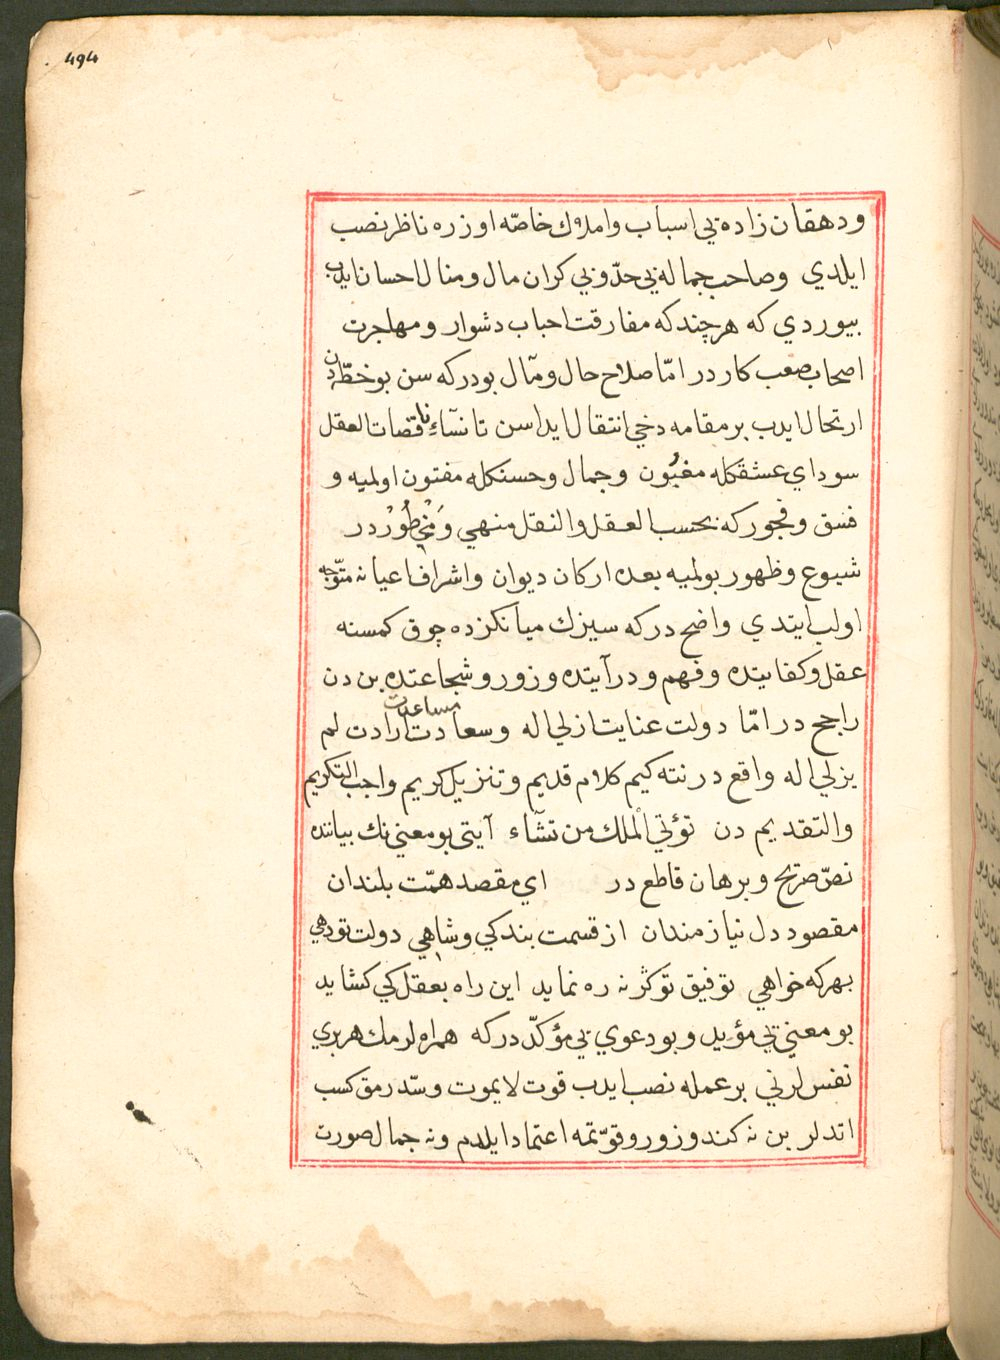 494
ودهقان زاده يي اسباب واملاك خاصّه اوزره ناظر نصب
ايلدي وصاحب جماله يي حدّ وبي كران مال ومنال احسان ايدب
بيوردي كه هر چند كه مفارقت احباب دشوار ومهاجرت
اصحاب صعب كاردر امّا صلاح حال ومآل بودركه سن بو خطّه دن
ارتحال ايدب بر مقامه دخي انتقال ايداسن تا نسآءِ ناقصات العقل
سوداي عشقكله مغبُون وجمال وحسنكله مفتون اولميه و
فسق وفجوركه بحسب العقل والنقل منهي ومَحْظُورْدر
شيوع وظهور بولميه بعده اركان ديوان واشراف اعيانه متوّجه
اولب ايتدي واضح دركه سيزك ميانكزده چوق كمسنه
عقل وكفايتده وفهم ودرآيتده وزور وشجاعتده بن دن
راجح در امّا دولت عنايت ازلي اله وسعادت مساعدت ارادت لم
يزلي اله واقع در نته كيم كلام قديم وتنزيل كريم واجب التكريم
والتقديم دن تؤتي الْملك من تشآء آيتى بو معني نك بياننده
نصّ صريح وبرهان قاطع در اي مقصد همّت بلندان
مقصود دل نيازمندان از قسمت بندكي وشاهي دولت تو دهي
بهركه خواهي توفيق تو كرنه ره نمايد اين راه بعقل كي كشايد
بو معني يي مؤيد وبو دعوي يي مؤكدّ دركه همراه لرمك هر بري
نفس لرني بر عمله نصب ايدب قوت لايموت وسّد رمق كسب
اتدلر بن نه كندو زور وقوّتمه اعتماد ايلدم ونه جمال صورت